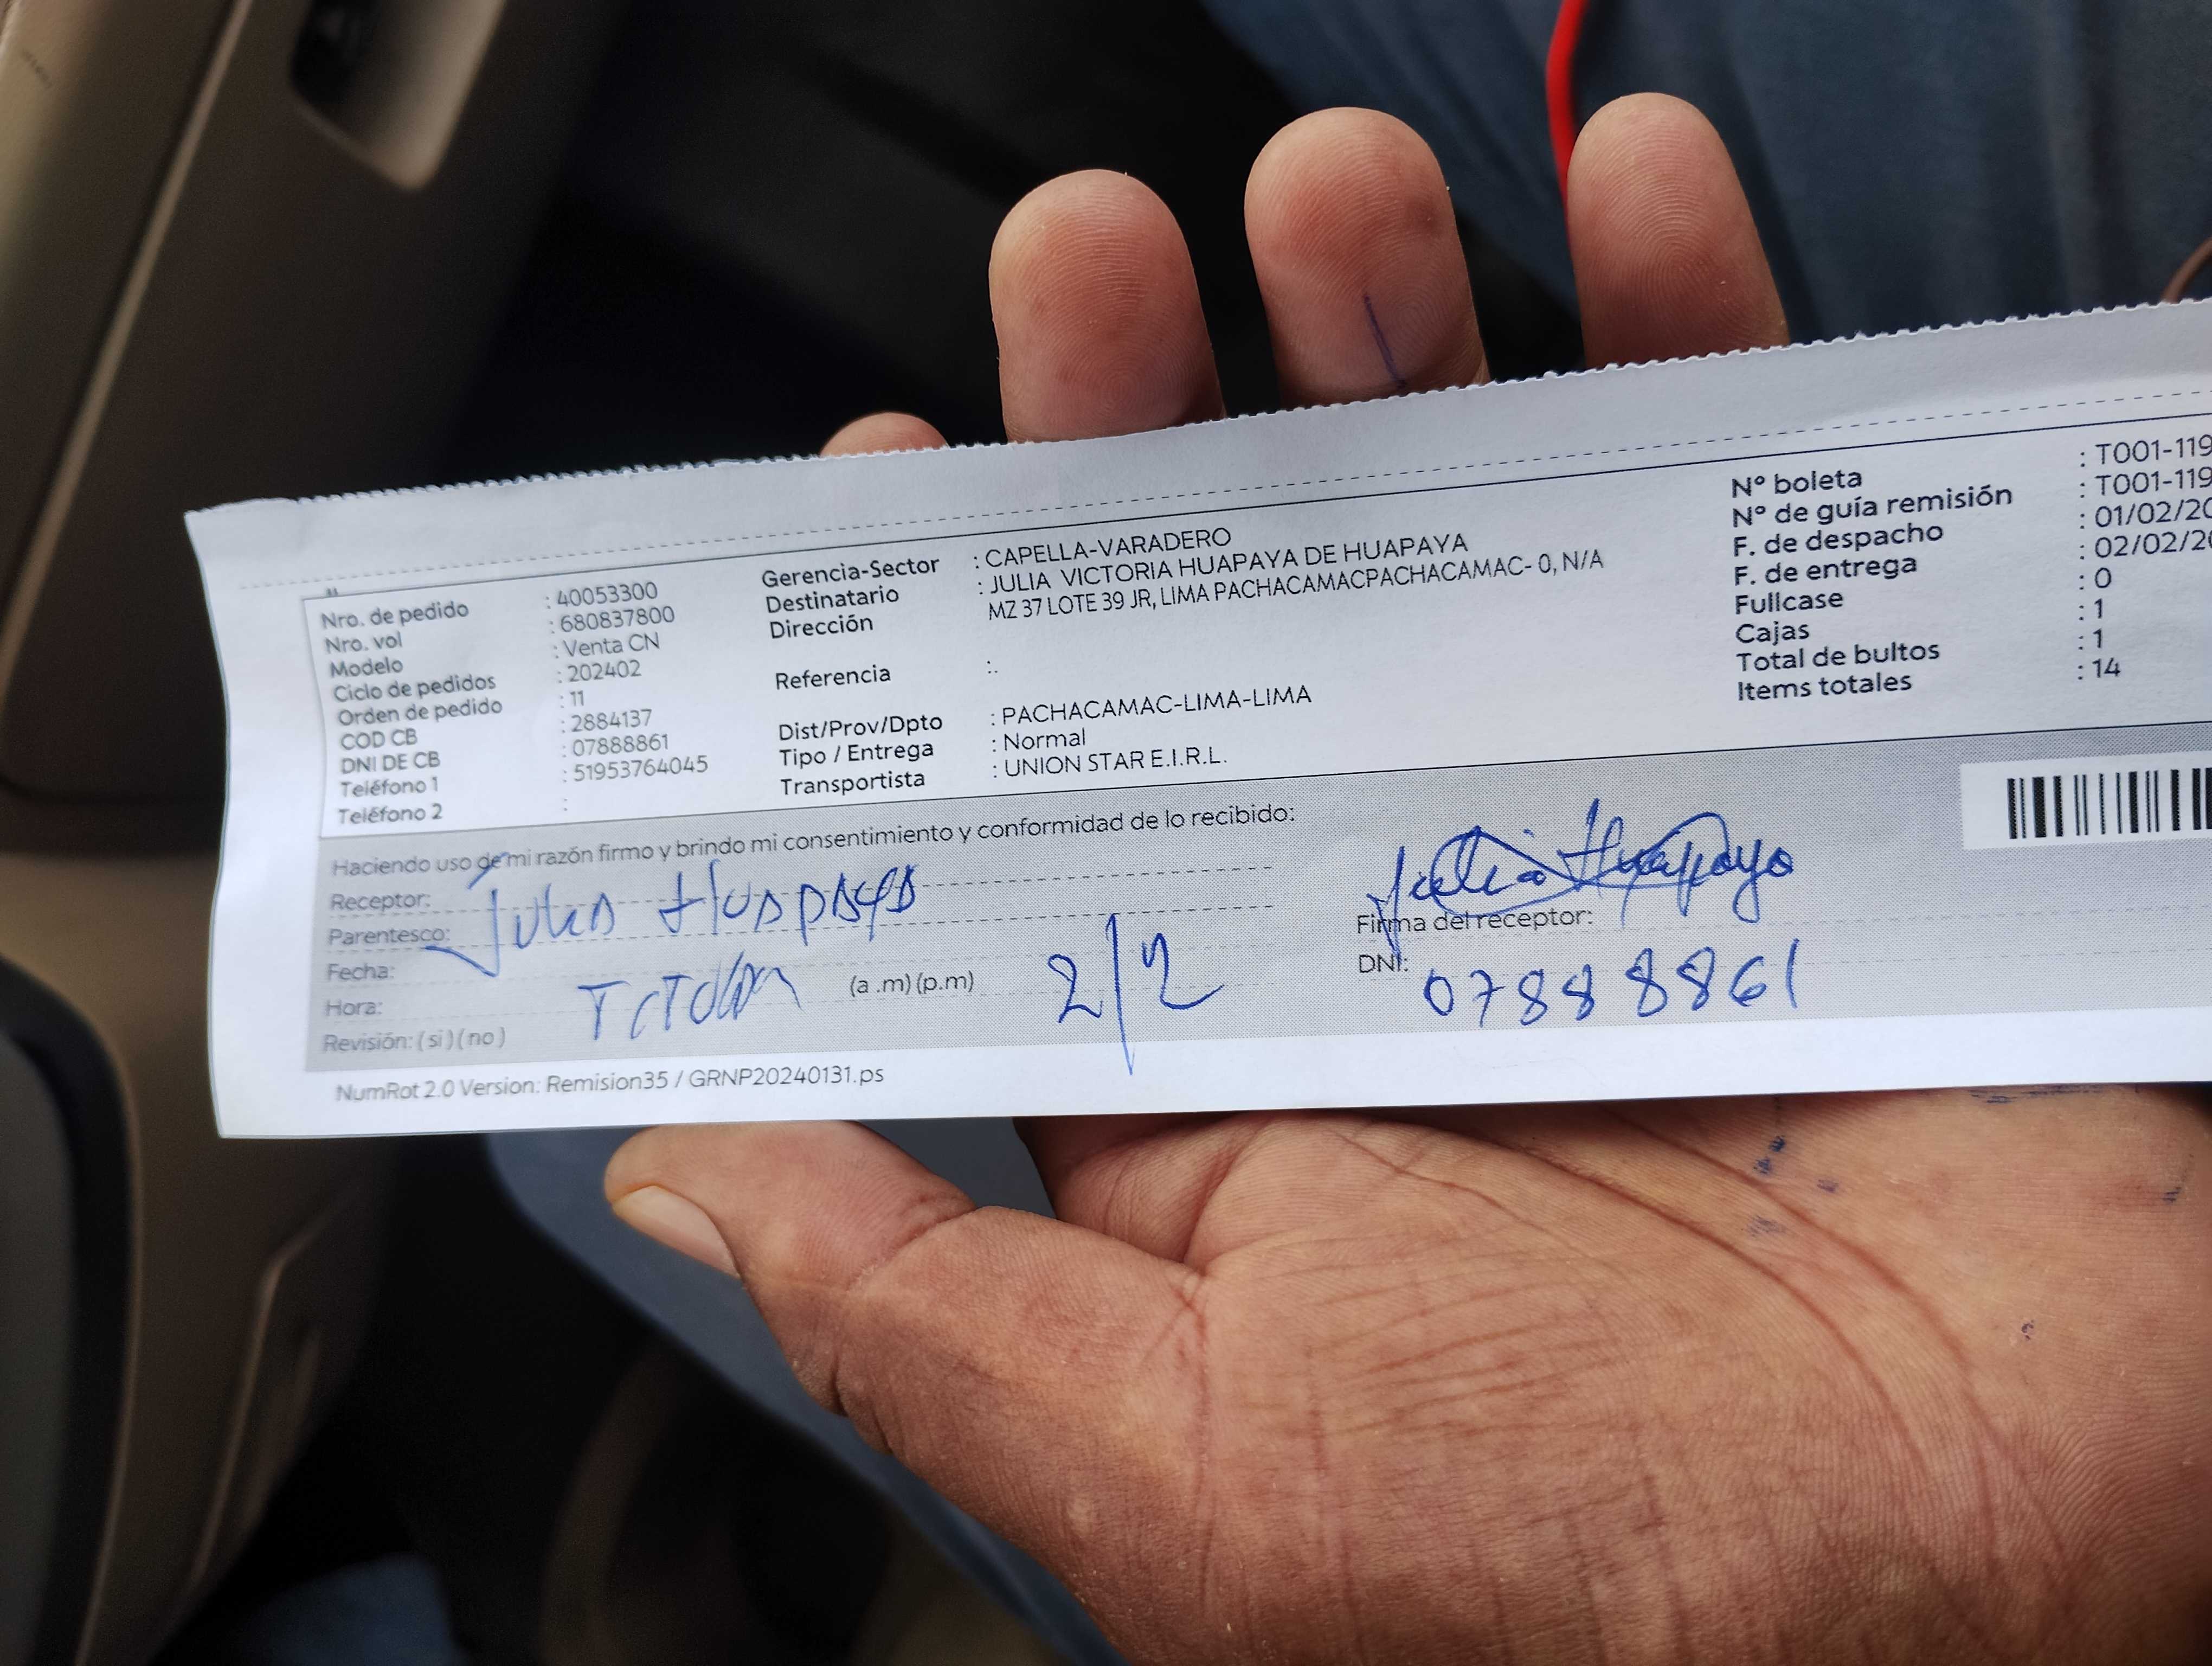 Nro. de pedido : 40053300
Nro. vol : 680837800
Modelo : Venta CN
Ciclo de pedidos : 202402
Orden de pedido : 11
COD CB : 2884137
DNI DE CB : 07888861
Teléfono 1 : 51953764045
Teléfono 2 :
Gerencia-Sector : CAPELLA-VARADERO
Destinatario : JULIA VICTORIA HUAPAYA DE HUAPAYA
Dirección MZ 37 LOTE 39 JR, LIMA PACHACAMACPACHACAMAC- 0, N/A
Referencia :.
Dist/Prov/Dpto : PACHACAMAC-LIMA-LIMA
Tipo / Entrega : Normal
Transportista : UNION STAR E.I.R.L.
N° boleta : T001-119
N° de guía remisión : T001-119
F. de despacho : 01/02/20
F. de entrega : 02/02/20
Fullcase : 0
Cajas : 1
Total de bultos : 1
Items totales : 14
Haciendo uso de mi razón firmo y brindo mi consentimiento y conformidad de lo recibido:
Receptor: Julia Huapaya
Parentesco:
Fecha:
Hora: (a .m) (p.m) 2/2
Revisión: ( si ) ( no )
Julia Huapaya
Firma del receptor:
DNI: 07888861
NumRot 2.0 Version: Remision35 / GRNP20240131.ps